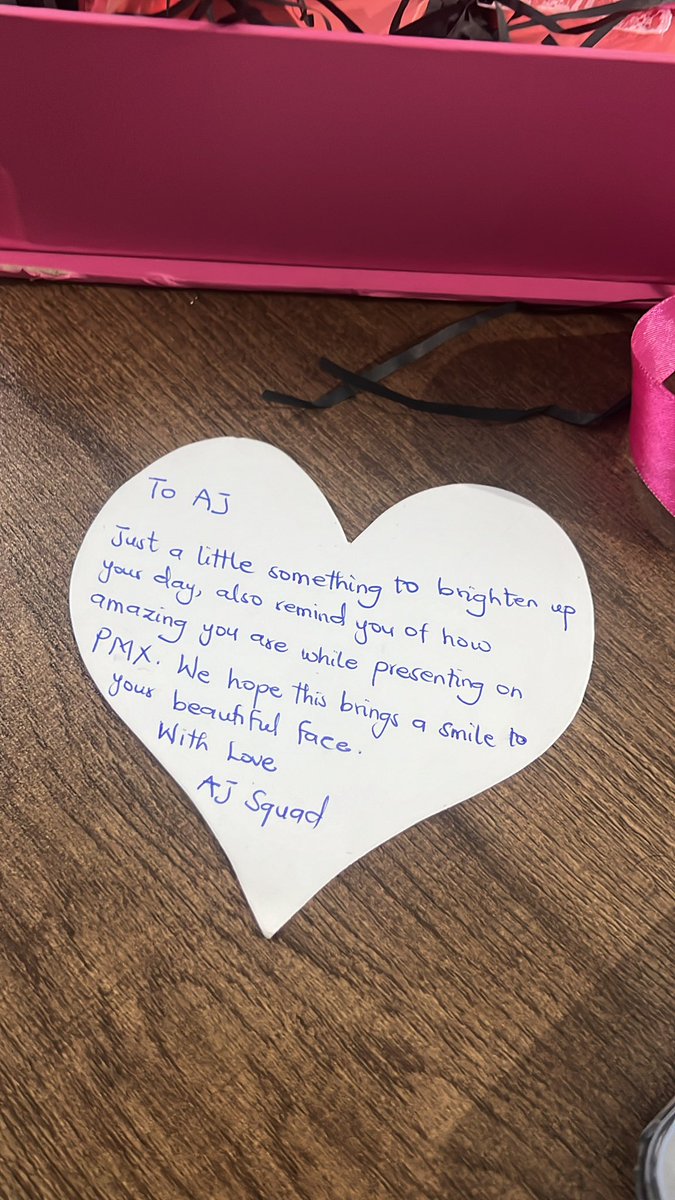 To AJ
Just a little something to brighten up
your day, also remind you of how
amazing you are while presenting on
PMX. We hope this brings a smile to
your beautiful face.
With Love
AJ Squad